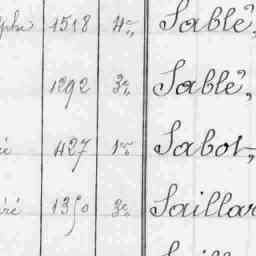 1518 4e Sablé,
1292 3e Sablé,
427 1re Sabot,
1350 3e Saillar